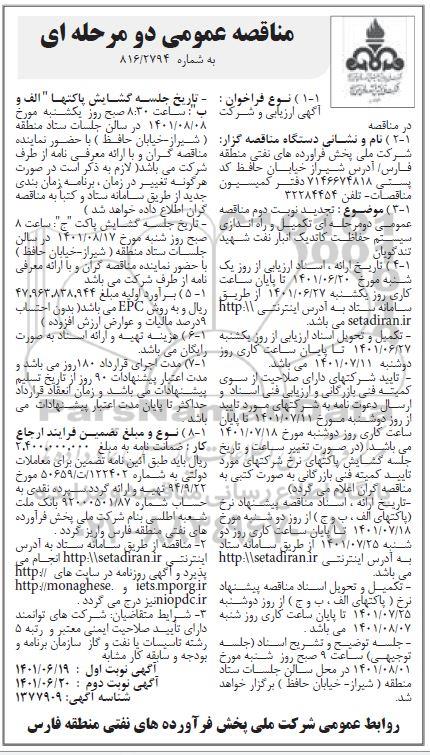 مناقصه عمومی دو مرحله ای
به شماره ۸۱۶/۲۷۹۴
۱-۱ ) نوع فراخوان :
آگهی ارزیابی و شرکت
در مناقصه
۱-۲ ) نام و نشانی دستگاه مناقصه گزار:
شرکت ملی پخش فرآورده های نفتی منطقه
فارس/ آدرس شیراز خیابان حافظ کد
پستی ۷۱۴۶۶۷۴۸۱۸ دفتر کمیسیون
مناقصات- تلفن ۳۲۲۸۴۴۵۴
۱-۳ ) موضوع : تجدید نوبت دوم مناقصه
عمومی دومرحله ای تکمیل و راه اندازی
سیستم حفاظت کاتدیک انبار نفت شهید
تندگویان
۱-۴ ) تاریخ ارائه ، اسناد ارزیابی از روز یک
شنبه مورخ ۱۴۰۱/۰۶/۲۰ تا پایان ساعت
کاری روز یکشنبه ۱۴۰۱/۰۶/۲۷ از طریق
سامانه ستاد به آدرس اینترنتی \\:http
setadiran.ir می باشد.
- تکمیل و تحویل اسناد ارزیابی از روز یکشنبه
۱۴۰۱/۰۶/۲۷ تا پایان ساعت کاری روز
دوشنبه ۱۴۰۱/۰۷/۱۱ می باشد.
- تایید شرکتهای دارای صلاحیت از سوی
کمیته فنی بازرگانی و ارزیابی فنی اسناد و
ارسال دعوت نامه به شرکتهای مورد تایید
از روز دوشنبه مورخ ۱۴۰۱/۰۷/۱۱ تا پایان
ساعت کاری روز دوشنبه مورخ ۱۴۰۱/۰۷/۱۸
می باشد.( در صورت تغییر ساعت و تاریخ
جلسه گشایش پاکتهای نرخ شرکتهای مورد
تایید کمیته فنی بازرگانی به صورت کتبی به
مناقصه گران اعلام می گردد)
-تاریخ ارائه ، اسناد مناقصه پیشنهاد نرخ
(پاکتهای الف ، ب و ج ) از روز دو شنبه مورخ
۱۴۰۱/۰۷/۱۸ تا پایان ساعت کاری روز دو
شنبه ۱۴۰۱/۰۷/۲۵ از طریق سامانه ستاد
به آدرس اینترنتی http:\\setadiran.ir
می باشد.
- تکمیل و تحویل اسناد مناقصه پیشنهاد
نرخ ( پاکتهای الف ، ب و ج ) از روز دوشنبه
۱۴۰۱/۰۷/۲۵ تا پایان ساعت کاری روز شنبه
۱۴۰۱/۰۸/۰۷ می باشد .
- جلسه توضیح و تشریح اسناد (جلسه
توجیهی) ساعت ۹ صبح روز شنبه مورخ
۱۴۰۱/۰۸/۰۱ در محل سالن جلسات ستاد
منطقه ( شیراز- خیابان حافظ ) برگزار خواهد
شد.
- تاریخ جلسه گشایش پاکتها " الف و
ب ": ساعت ۸:۳۰ صبح روز یکشنبه مورخ
۱۴۰۱/۰۸/۰۸ در سالن جلسات ستاد منطقه
( شیراز-خیابان حافظ ) با حضور نماینده
مناقصه گران و با ارائه معرفی نامه از طرف
شرکت می باشد( لازم به ذکر است در صورت
هرگونه تغییر در زمان ، برنامه زمان بندی
جدید از طریق سامانه ستاد و کتبا به مناقصه
گران اطلاع داده خواهد شد )
- تاریخ جلسه گشایش پاکت "ج": ساعت ۸
صبح روز شنبه مورخ ۱۴۰۱/۰۸/۱۷ در سالن
جلسات ستاد منطقه ( شیراز-خیابان حافظ )
با حضور نماینده مناقصه گران و با ارائه معرفی
نامه از طرف شرکت می باشد
۱-۵ ) برآورد اولیه مبلغ ۴۷,۹۶۳,۸۳۸,۹۴۴
ریال و به روش EPC می باشد( بدون احتساب
۹درصد مالیات و عوارض ارزش افزوده )
۱-۶ ) هزینه تهیه و ارائه اسناد به صورت
رایگان می باشد.
۱-۷) مدت اجرای قرارداد ۱۸۰ روز می باشد و
مدت اعتبار پیشنهادات ۹۰ روز از تاریخ تسلیم
پیشنهادات می باشد و زمان انعقاد قرارداد
حداکثر تا پایان مدت اعتبار پیشنهادات می
باشد.
۱-۸) نوع و مبلغ تضمین فرایند ارجاع
کار : ضمانت نامه به مبلغ ۲,۴۰۰,۰۰۰,۰۰۰
ریال باید طبق آئین نامه تضمین برای معاملات
دولتی به شماره ۱۲۳۴۰۲/ت۵۰۶۵۹ مورخ
۹۴/۹/۲۲ تهیه و ارائه گردد . سپرده نقدی به
حساب شماره ۹۲۰۰۰۵۰۱۸۷ بانک ملت
شعبه اطلسی بنام شرکت ملی پخش فرآورده
های نفتی منطقه فارس واریز گردد .
۲- مناقصه از طریق سامانه ستاد به آدرس
اینترنتی http:\\setadiran.ir انجام می
پذیرد و آگهی روزنامه در سایت های //:http
iets.mporg.ir و http://monaghese.
niopdc.ir نیز درج می گردد .
۳- شرایط متقاضیان: شرکت های توانمند
دارای تأیید صلاحیت ایمنی معتبر و رتبه ۵
رشته تاسیسات یا نفت و گاز سازمان برنامه و
بودجه و سابقه کار مشابه
آگهی نوبت اول : ۱۴۰۱/۰۶/۱۹
آگهی نوبت دوم : ۱۴۰۱/۰۶/۲۰
شناسه آگهی: ۱۳۷۷۹۰۹
روابط عمومی شرکت ملی پخش فرآورده های نفتی منطقه فارس